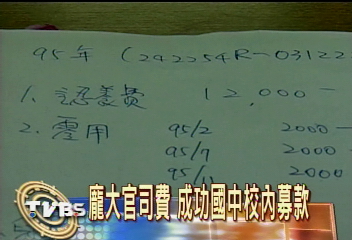 95年 (242254R-03122
1. 認養費 12,000-
2. 零用 95/2 2000-
95/9 2000-
95/11 2000
TVBS
龐大官司費 成功國中校內募款